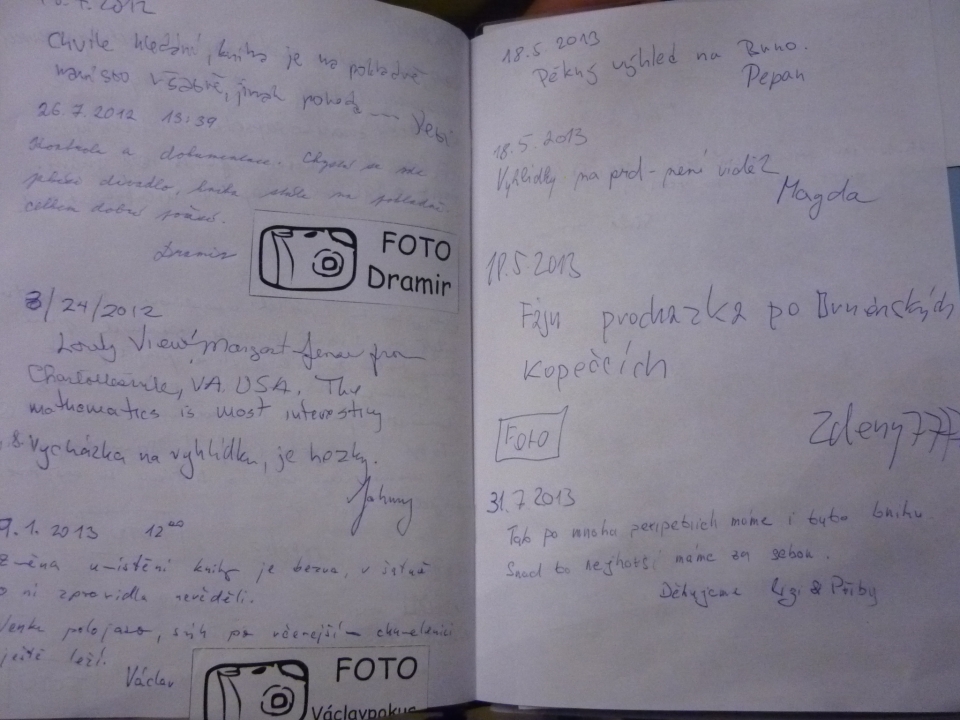 .7.2012
Chvíle hledání, kniha je na pokladně
namísto v šatně, jinak pohoda --- Vebi
26.7.2012 13:39
a dokumentace. Chystá se zde
divadlo, kniha stále na pokladně.
celkem dobré počasí.
Dramir
FOTO
Dramir
8/24/2012
Lovely View! from
Charlottesville, VA. USA. The
mathematics is most interesting
8. Vycházka na vyhlídku, je hezky.
Johnny
9.1.2013 12 00
změna umístění knihy je bezva, v šatně
o ní zpravidla nevěděli.
Venku polojasno, sníh po včerejší chumelenici
ještě leží.
Václav
FOTO
Václavpokus
18.5.2013
Pěkný výhled na Brno.
Pepan
18.5.2013
Vyhlídky na prd - není vidět
Magda
18.5 2013
Fajn procházka po Brněnských
kopečcích
FOTO
Zdeny777
31.7.2013
Tak po mnoha peripetiích máme i tuto knihu.
Snad to nejhorší máme za sebou.
Děkujeme Ligi & Přiby